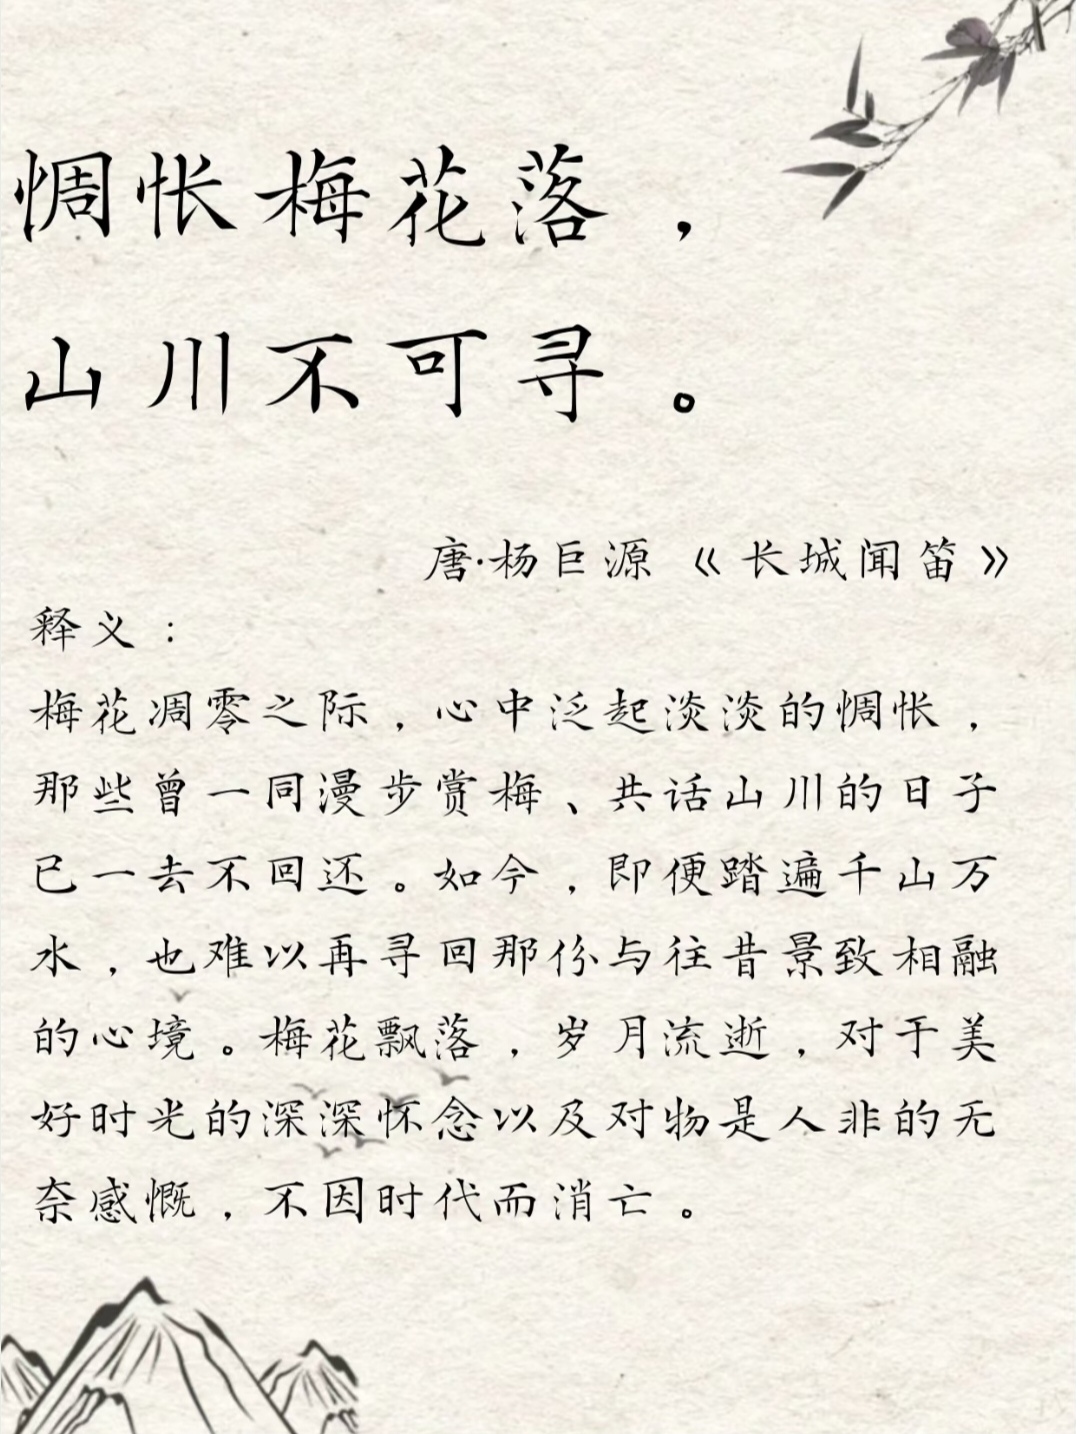 惆怅梅花落，
山川不可寻。
唐·杨巨源《长城闻笛》
释义：
梅花凋零之际，心中泛起淡淡的惆怅，
那些曾一同漫步赏梅、共话山川的日子
已一去不回还。如今，即便踏遍千山万
水，也难以再寻回那份与往昔景致相融
的心境。梅花飘落，岁月流逝，对于美
好时光的深深怀念以及对物是人非的无
奈感慨，不因时代而消亡。